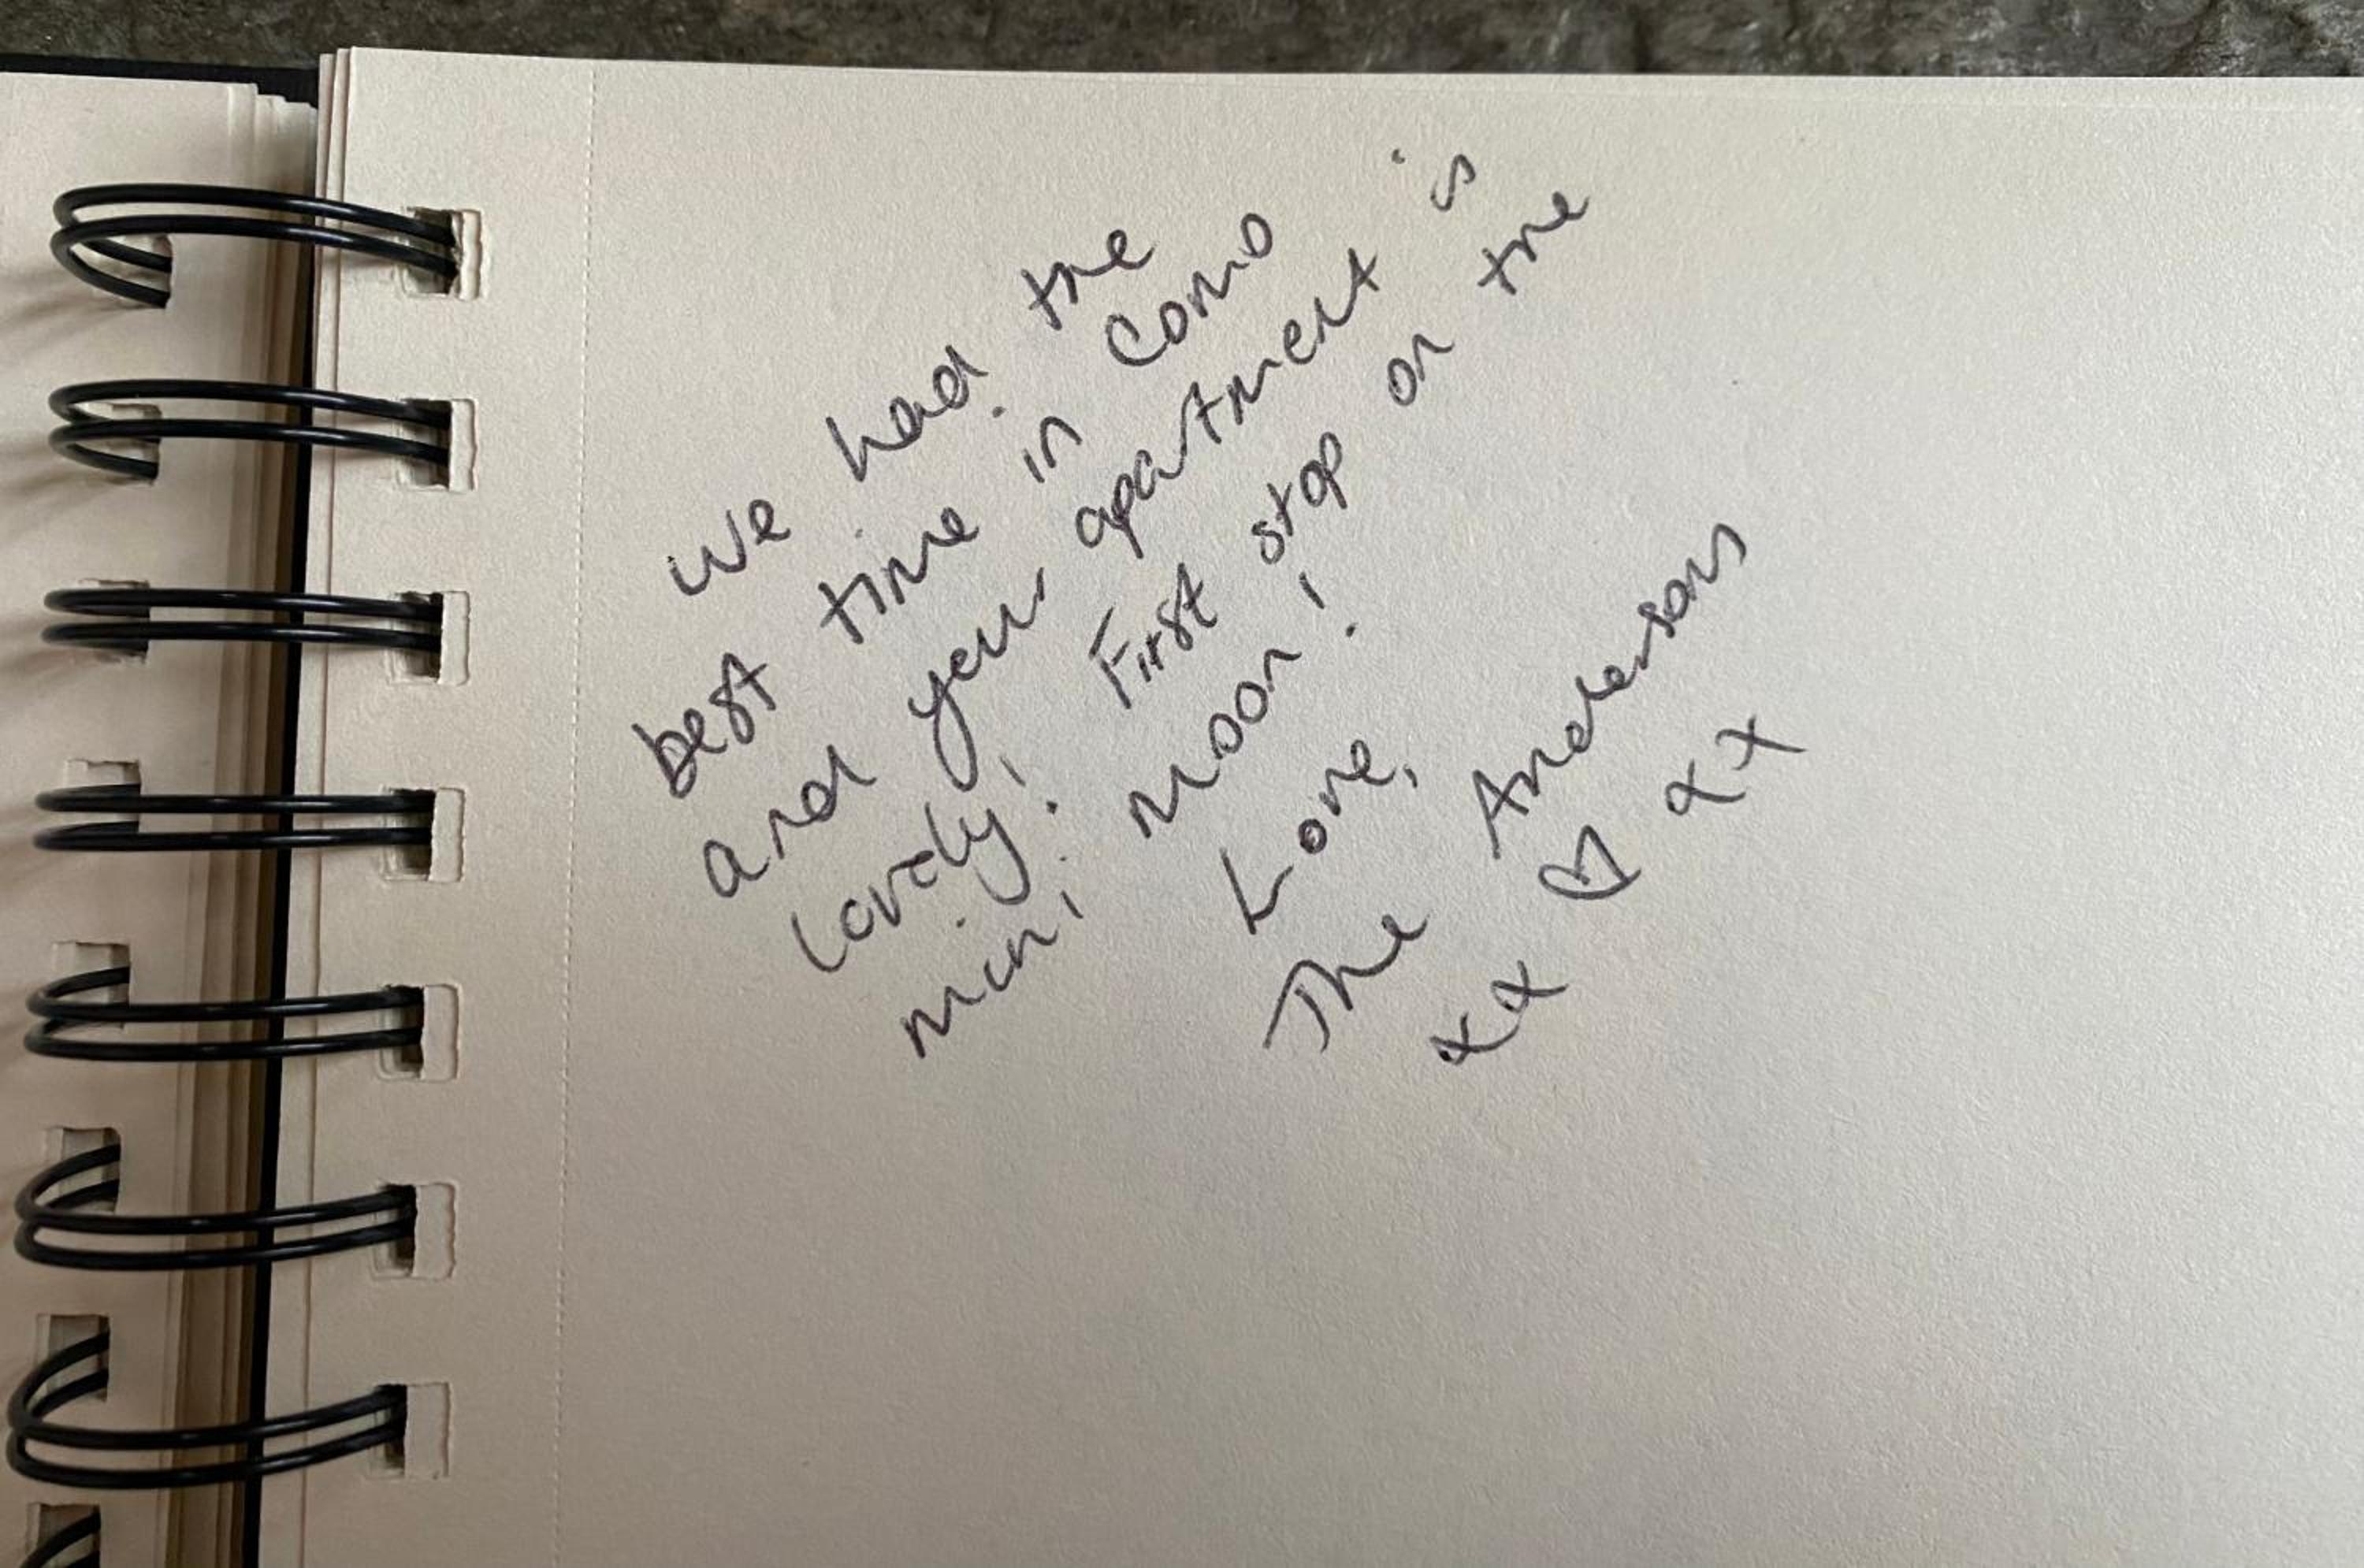 We had the
best time in Como
and your apartment is
lovely! First stop on the
mini moon!
Love,
The Andersons
xx ♡ xx